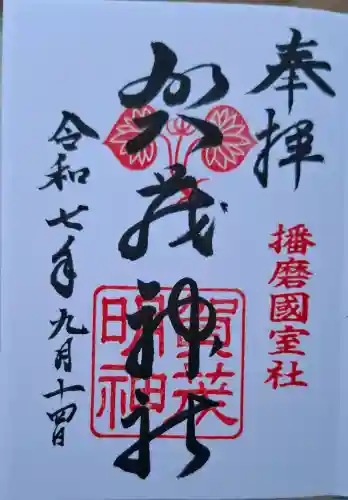 奉拝
播磨國室社
賀茂神社
賀茂
明神
令和七年九月十四日